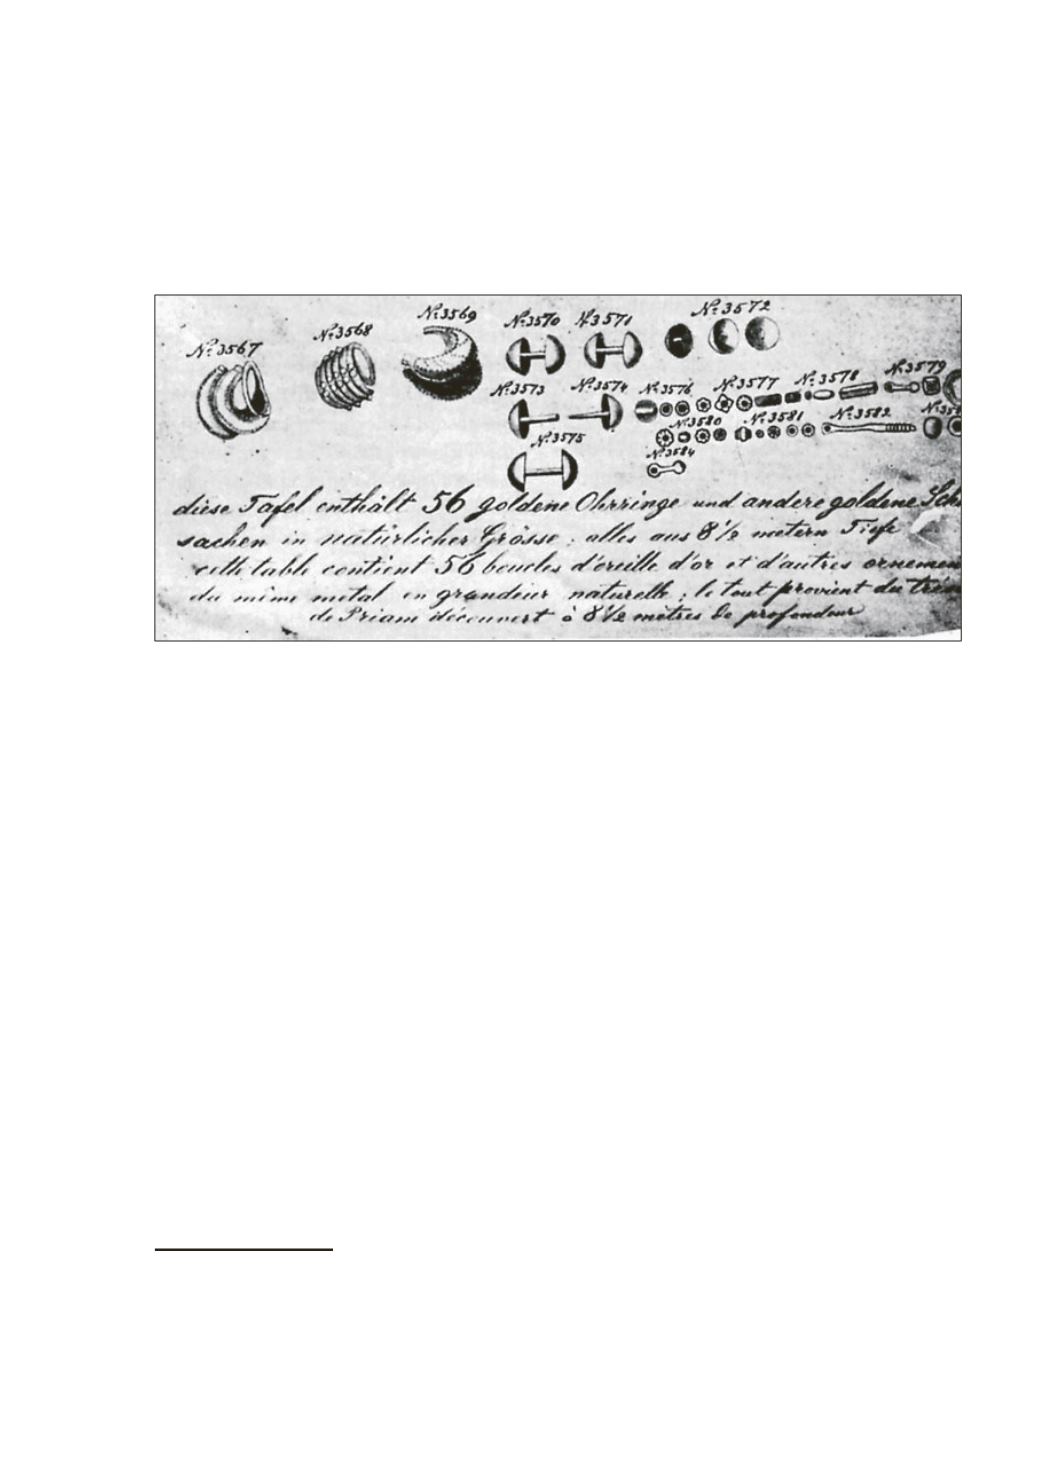 No. 3567
No. 3568
No. 3569
No. 3570
No. 3571
No. 3572
No. 3573
No. 3574
No. 3576
No. 3577
No. 3578
No. 3579
No. 3580
No. 3581
No. 3582
No. 3575
No. 3584
diese Tafel enthält 56 goldene Ohrringe und andere goldene Sch
sachen in natürlicher Grösse; alles aus 8½ metern Tiefe
cette table contient 56 boucles d'oreille d'or et d'autres ornemen
du même metal en grandeur naturelle; le tout provient du trés
de Priam découvert à 8½ mètres de profondeur